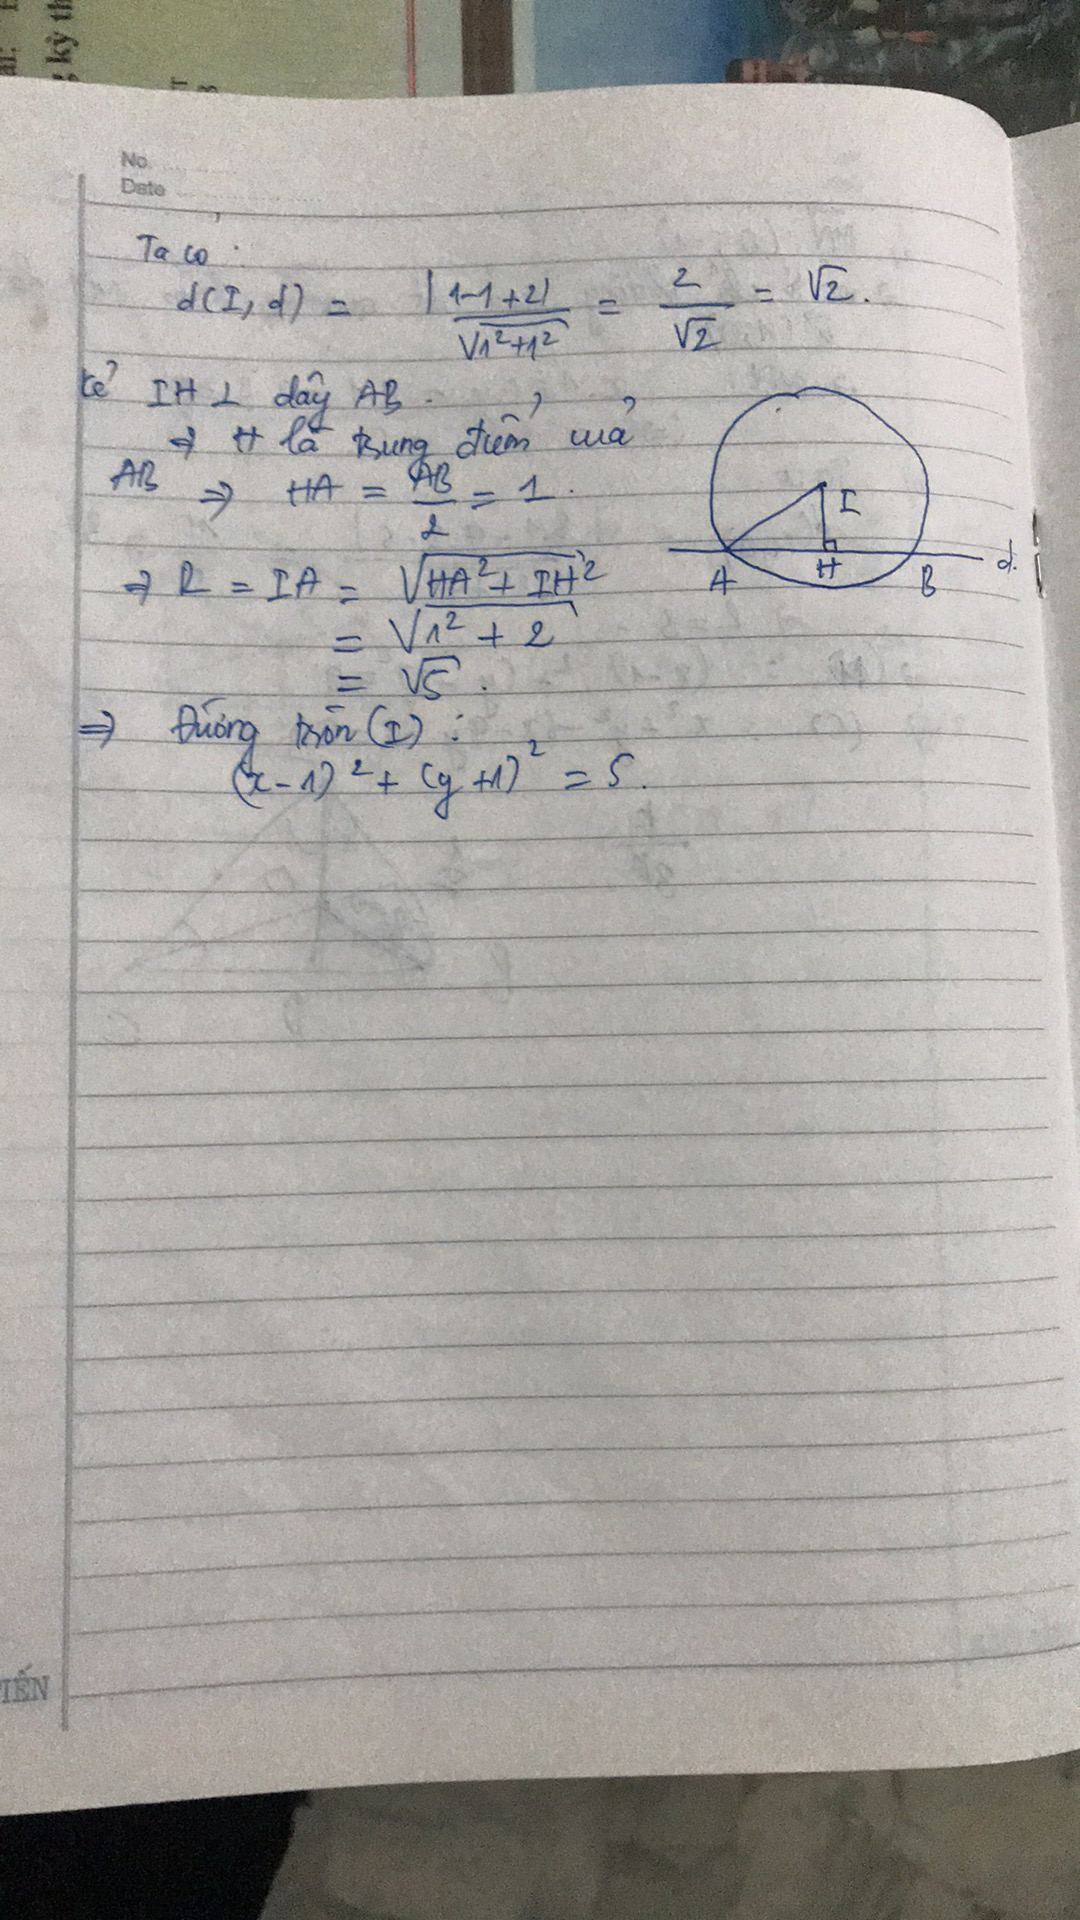 No.
Date
Ta có :
d(I, d) = |1-1+2| / √1²+1² = 2/√2 = √2.
kẻ IH ⊥ dây AB.
⇒ H là trung điểm của
AB ⇒ HA = AB/2 = 1.
⇒ R = IA = √HA² + IH²
= √1² + 2
= √5.
⇒ Đường tròn (I) :
(x-1)² + (y+1)² = 5.
I
A H B d.
IẾN
kỳ th